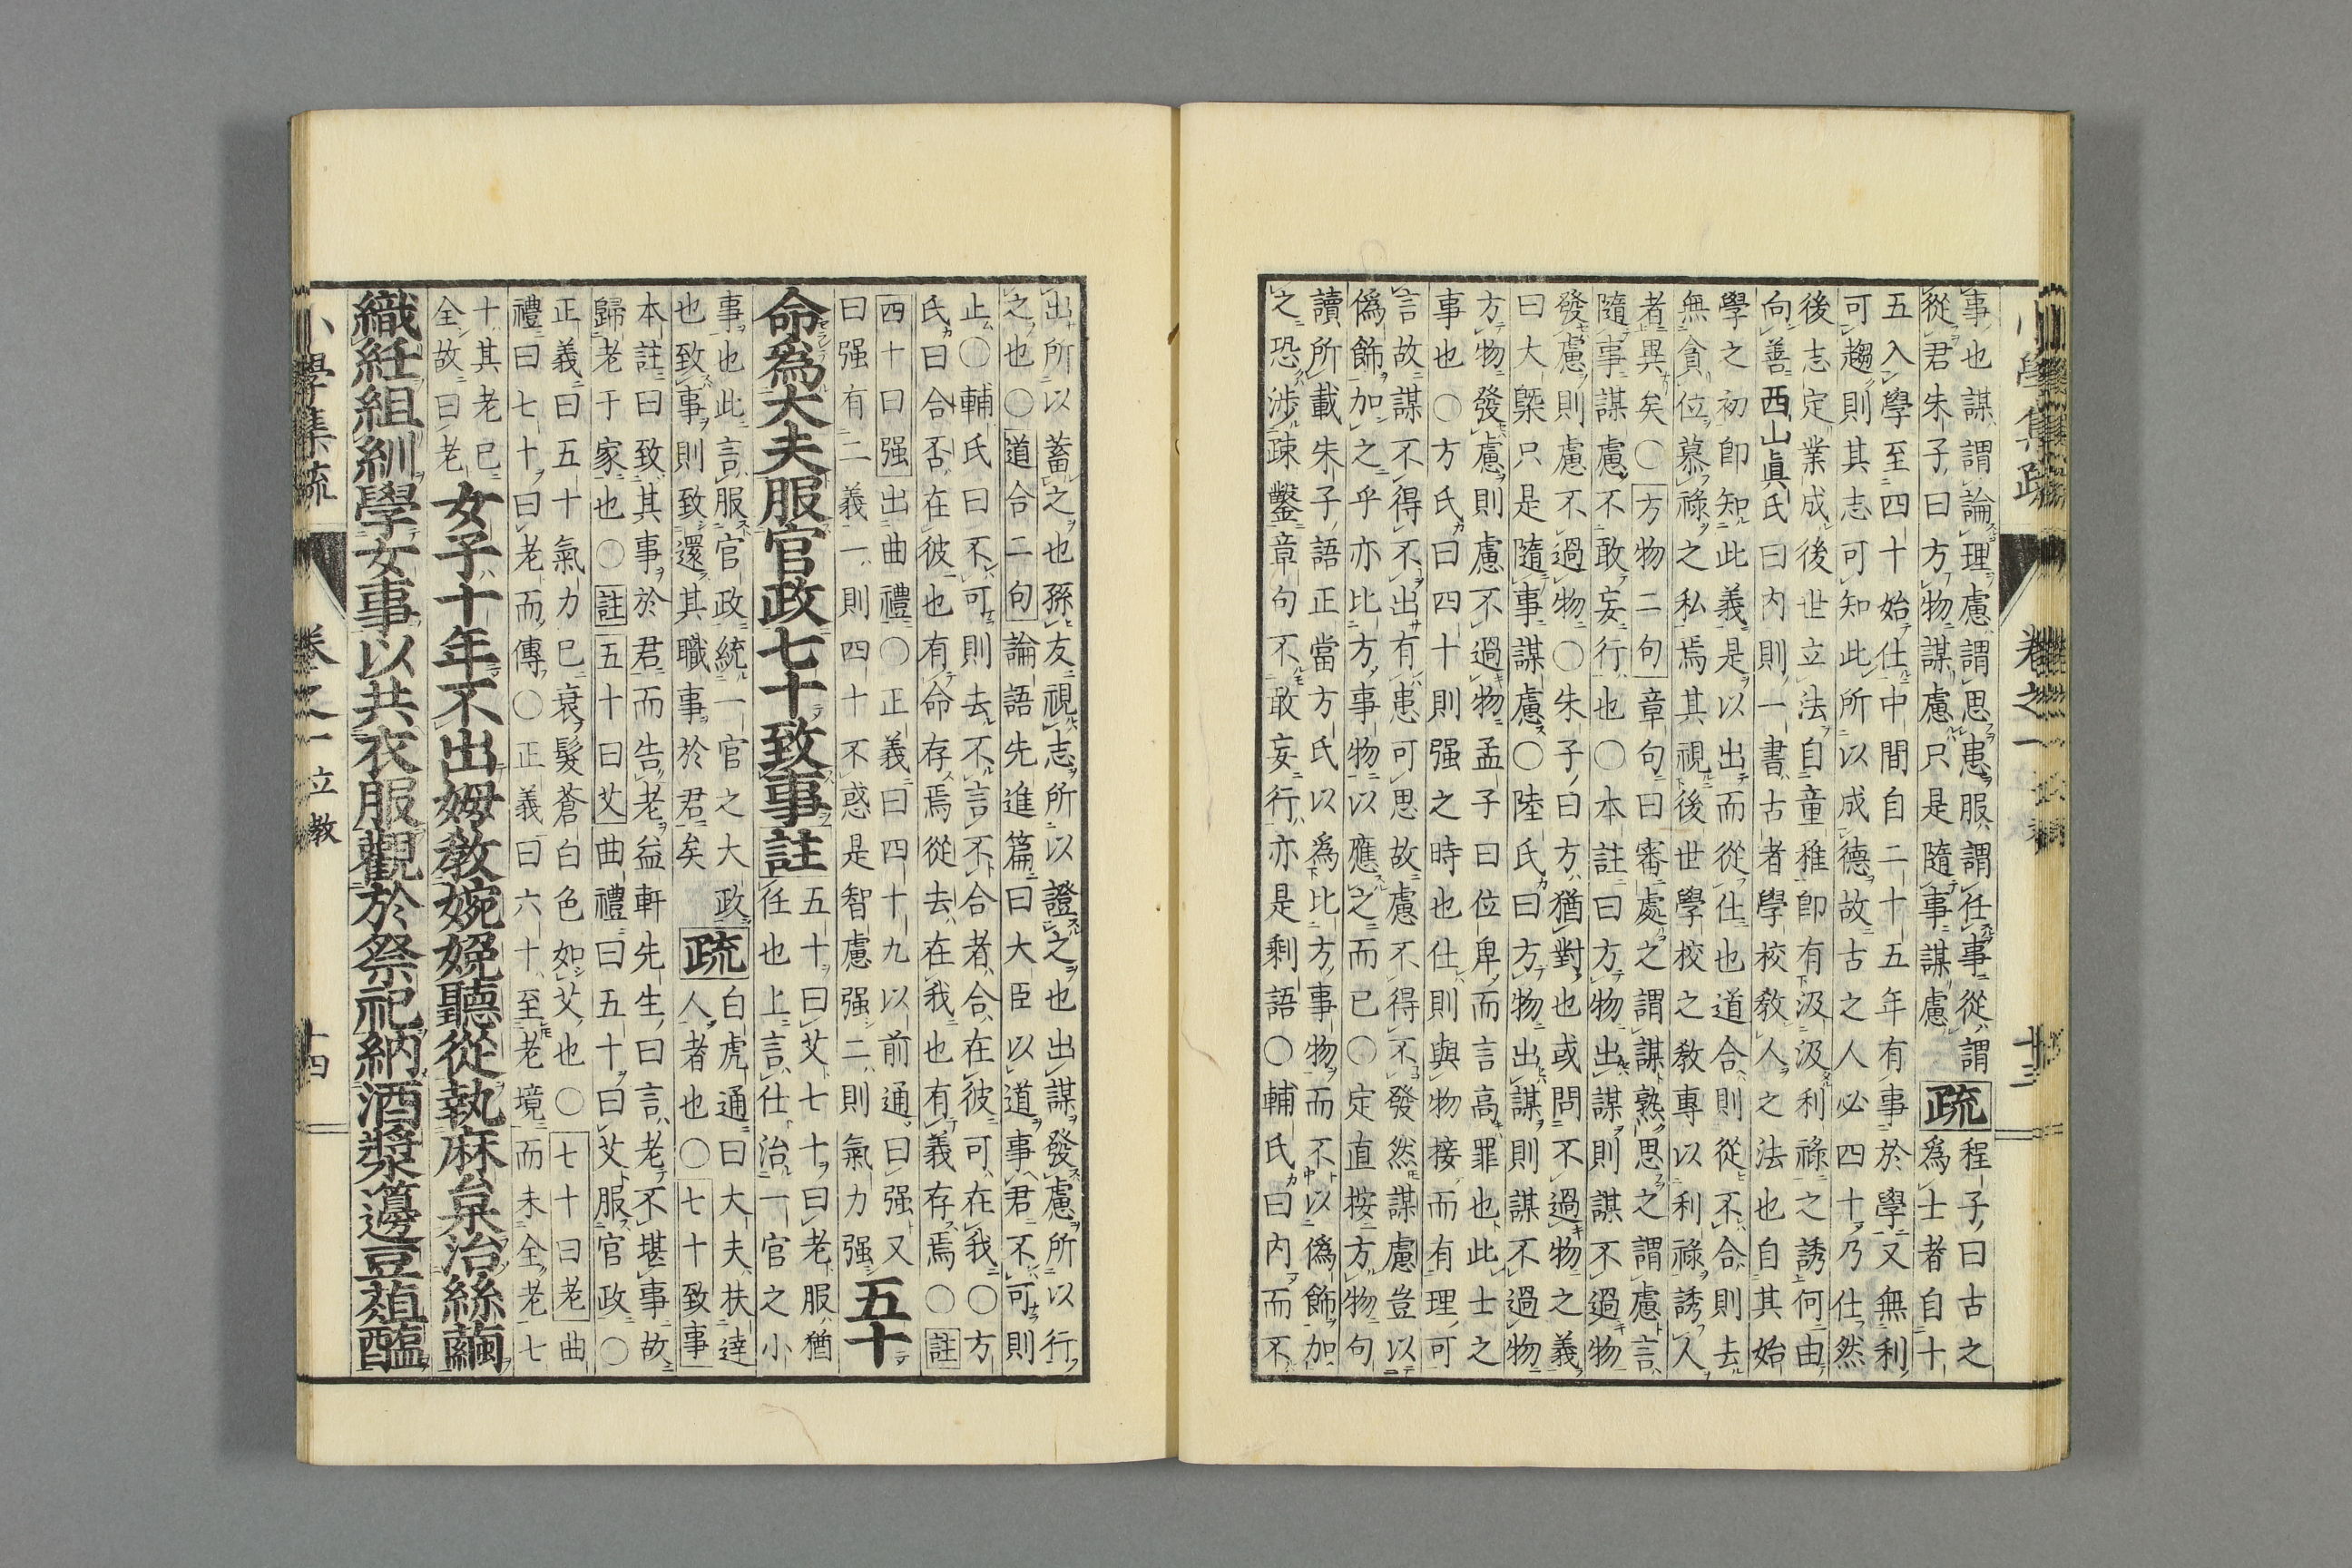 小學集疏 卷之一 十三
事也謀謂論理慮謂思患服謂任事從謂
從君朱子曰方物謀慮只是隨事謀慮
疏
程子曰古之
爲士者自十
五入學至四十始仕中間自二十五年有事於學又無利
可趨則其志可知此所以成德故古之人必四十乃仕然
後志定業成後世立法自童稚即有汲汲利祿之誘何由
向善西山眞氏曰內則一書古者學校教人之法也自其始
學之初即知此義是以出而從仕也道合則從不合則去
無貪位慕祿之私焉其視後世學校之敎專以利祿誘人
者異矣〇方物二句章句曰審處之謂謀熟思之謂慮言
隨事謀慮不敢妄行也〇本註曰方物出謀則謀不過物
發慮則慮不過物〇朱子曰方猶對也或問不過物之義
曰大槩只是隨事謀慮〇陸氏曰方物出謀則謀不過物
方物發慮則慮不過物孟子曰位卑而言高罪也此士之
事也〇方氏曰四十則强之時也仕則與物接而有理可
言故謀不得不出有患可思故慮不得不發然謀慮豈以
僞飾加之乎亦比方事物以應之而已〇定直按方物句
讀所載朱子語正當方氏以爲比方事物而不以僞飾加
之恐涉疎鑿章句不敢妄行亦是剩語〇輔氏曰內而不
出所以蓄之也孫友視志所以證之也出謀發慮所以行
之也〇道合二句論語先進篇曰大臣以道事君不可則
止〇輔氏曰不可則去不言不合者合在彼可在我〇方
氏曰合否在彼也有命存焉從去在我也有義存焉〇註
四十曰强出曲禮〇正義曰四十九以前通曰强又
曰强有二義一則四十不惑是智慮强二則氣力强
五十
命爲大夫服官政七十致事註
五十曰艾七十曰老服猶
任也上言仕治一官之小
事也此言服官政統一官之大政
也致事則致還其職事於君矣
疏
白虎通曰大夫扶達
人者也〇七十致事
本註曰致其事於君而告老益軒先生曰言老不堪事故
歸老于家也〇註五十曰艾曲禮曰五十曰艾服官政〇
正義曰五十氣力已衰髮蒼白色如艾也〇七十曰老曲
禮曰七十曰老而傳〇正義曰六十至老境而未全老七
十其老已
全故曰老
女子十年不出姆敎婉娩聽從執麻枲治絲繭
織紝組紃學女事以共衣服觀於祭祀納酒漿籩豆葅醢
小學集疏 卷之一 立敎 十四